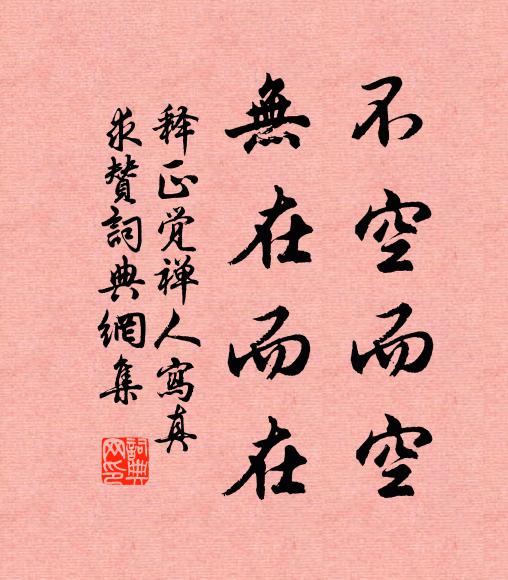 不空而空
無在而在
释正觉禅人寫真
求贊詞典網集
詞典网印